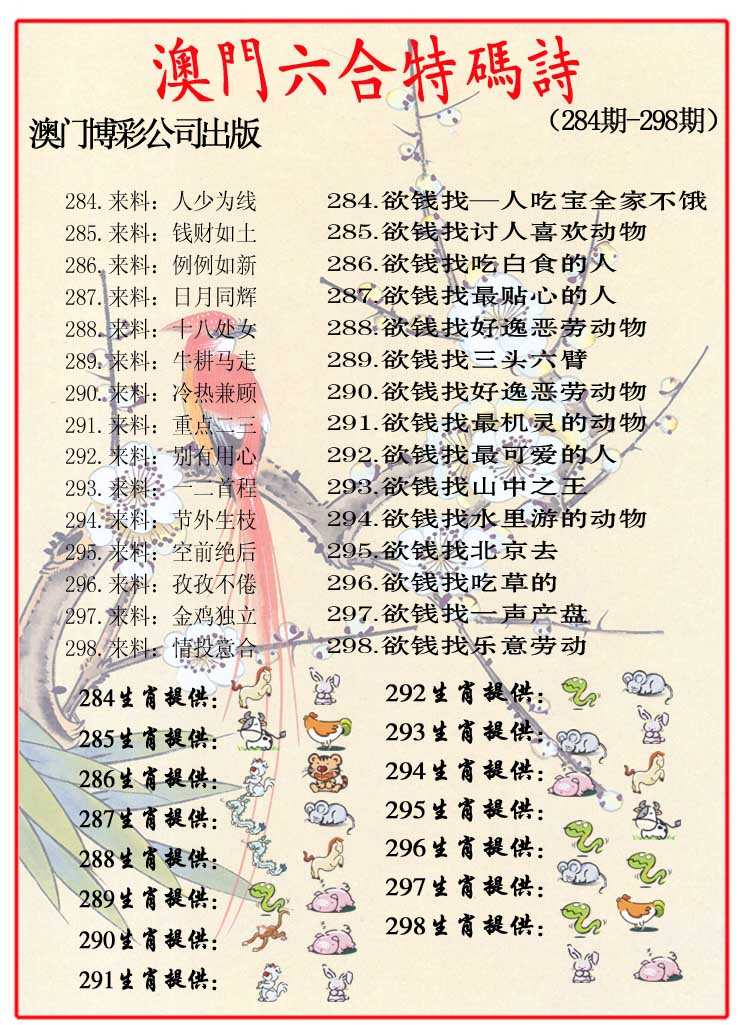 澳門六合特碼詩
澳门博彩公司出版
（284期-298期）
284.来料：人少为线 284.欲钱找—人吃宝全家不饿
285.来料：钱财如土 285.欲钱找讨人喜欢动物
286.来料：例例如新 286.欲钱找吃白食的人
287.来料：日月同辉 287.欲钱找最贴心的人
288.来料：十八处女 288.欲钱找好逸恶劳动物
289.来料：牛耕马走 289.欲钱找三头六臂
290.来料：冷热兼顾 290.欲钱找好逸恶劳动物
291.来料：重点二三 291.欲钱找最机灵的动物
292.来料：别有用心 292.欲钱找最可爱的人
293.来料：一二首程 293.欲钱找山中之王
294.来料：节外生枝 294.欲钱找水里游的动物
295.来料：空前绝后 295.欲钱找北京去
296.来料：孜孜不倦 296.欲钱找吃草的
297.来料：金鸡独立 297.欲钱找一声产盘
298.来料：情投意合 298.欲钱找乐意劳动
284生肖提供：
285生肖提供：
286生肖提供：
287生肖提供：
288生肖提供：
289生肖提供：
290生肖提供：
291生肖提供：
292生肖提供：
293生肖提供：
294生肖提供：
295生肖提供：
296生肖提供：
297生肖提供：
298生肖提供：